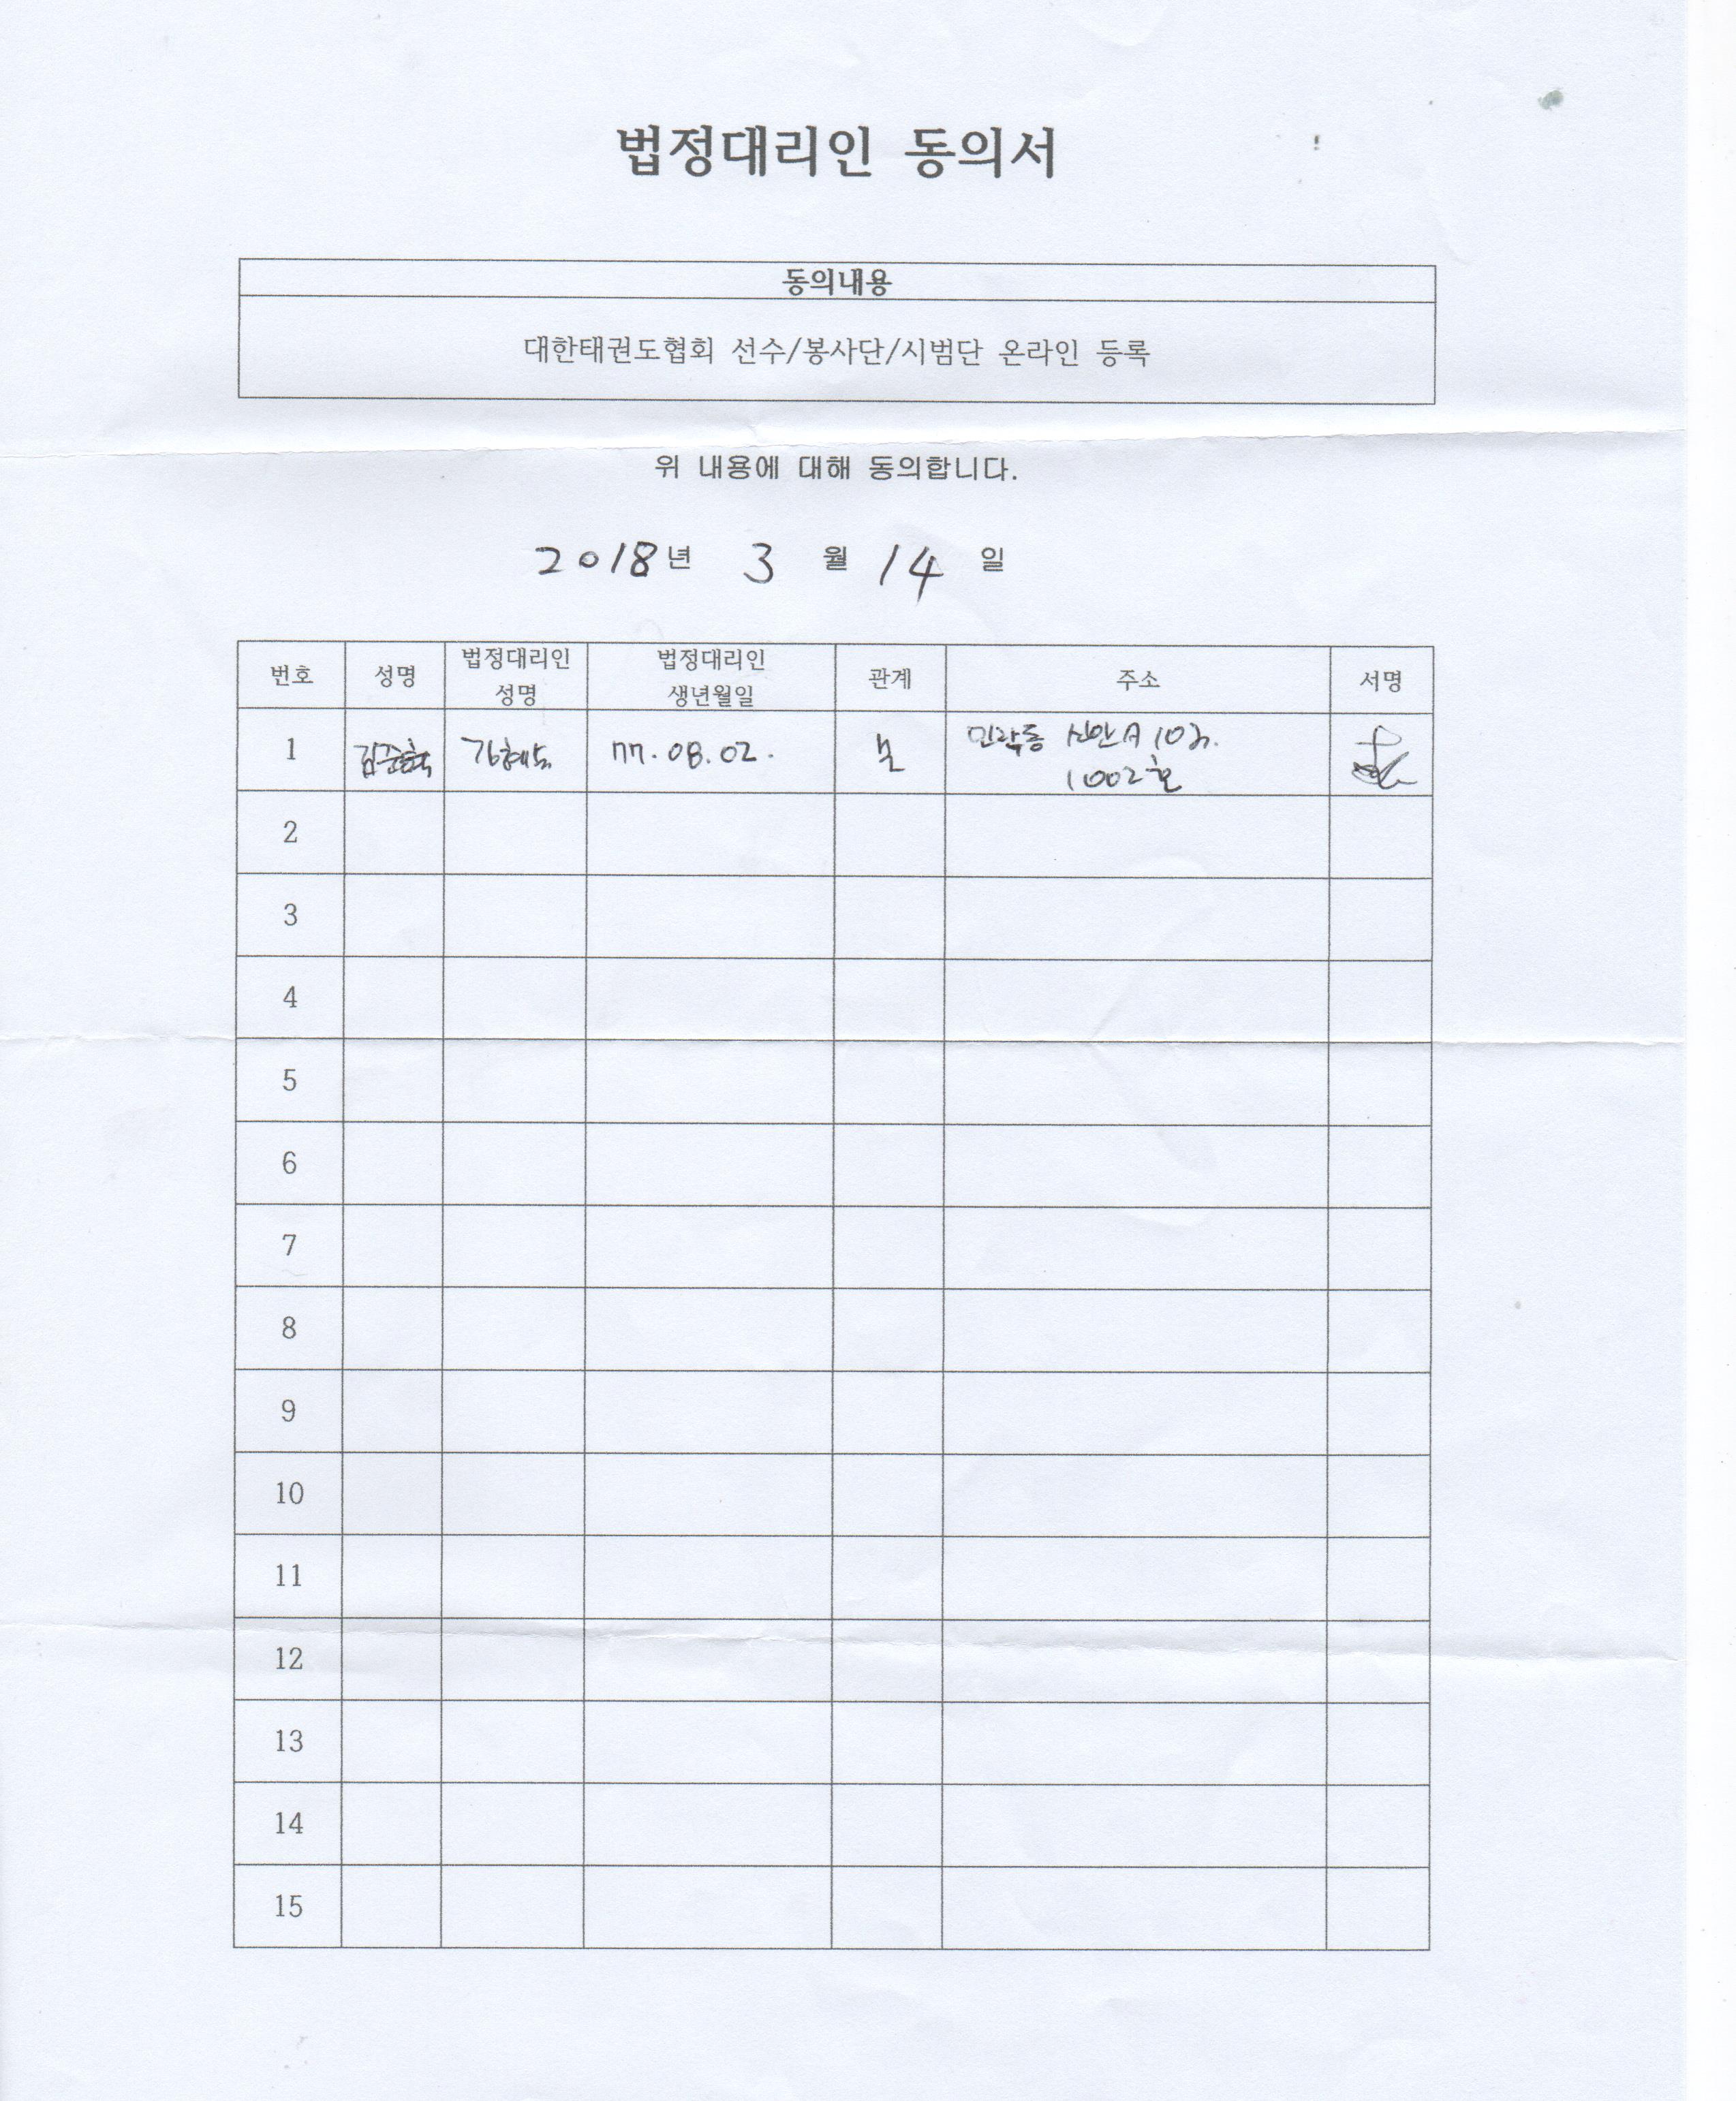 법정대리인 동의서
동의내용
대한태권도협회 선수/봉사단/시범단 온라인 등록
위 내용에 대해 동의합니다.
2018년 3 월 14 일
번호 성명 법정대리인 성명 법정대리인 생년월일 관계 주소 서명
1 김준혁 77.08.02. 부 민락동 신안A
1002호
2
3
4
5
6
7
8
9
10
11
12
13
14
15